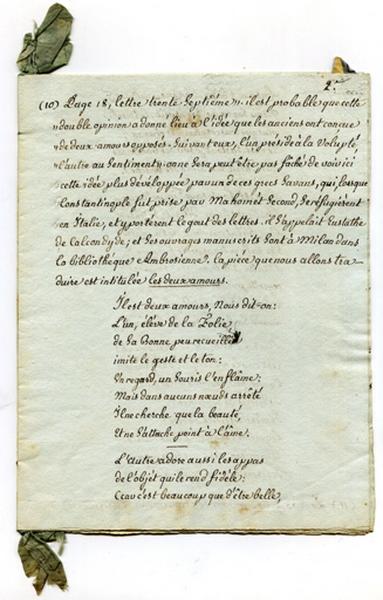 2.e
(10) Page 18, lettre trente Septiéme ». il est probable que cette
» double opinion a donné lieu à l'idée que les anciens ont conçue
» de deux amours opposés. Suivant eux, l'un préside à la Volupté,
» l'autre au Sentiment». on ne Sera peut être pas fâché de voir ici
cette idée plus dévéloppée par un de ces grecs Savans, qui, lorsque
Constantinople fut prise par Mahomet Second, Se réfugièrent
en Italie, et y portèrent le gout des lettres. il S'appelait Eustathe
de Calcondyde; et Ses ouvrages manuscrits Sont à Milan dans
la bibliothéque Ambrosienne. la piéce que nous allons tra-
duire est intitulée les deux amours.
Il est deux amours, Nous dit-on:
L'un, élève de la Folie,
de Sa Bonne peu recueillie
imite le geste et le ton:
Un regard, un Souris l'enflâme:
Mais dans aucuns nœuds arrêté
Il ne cherche que la beauté,
Et ne S'attache point à l'âme.
L'autre adore aussi les appas
de l'objet qui le rend fidéle:
Car c'est beaucoup que d'être belle,